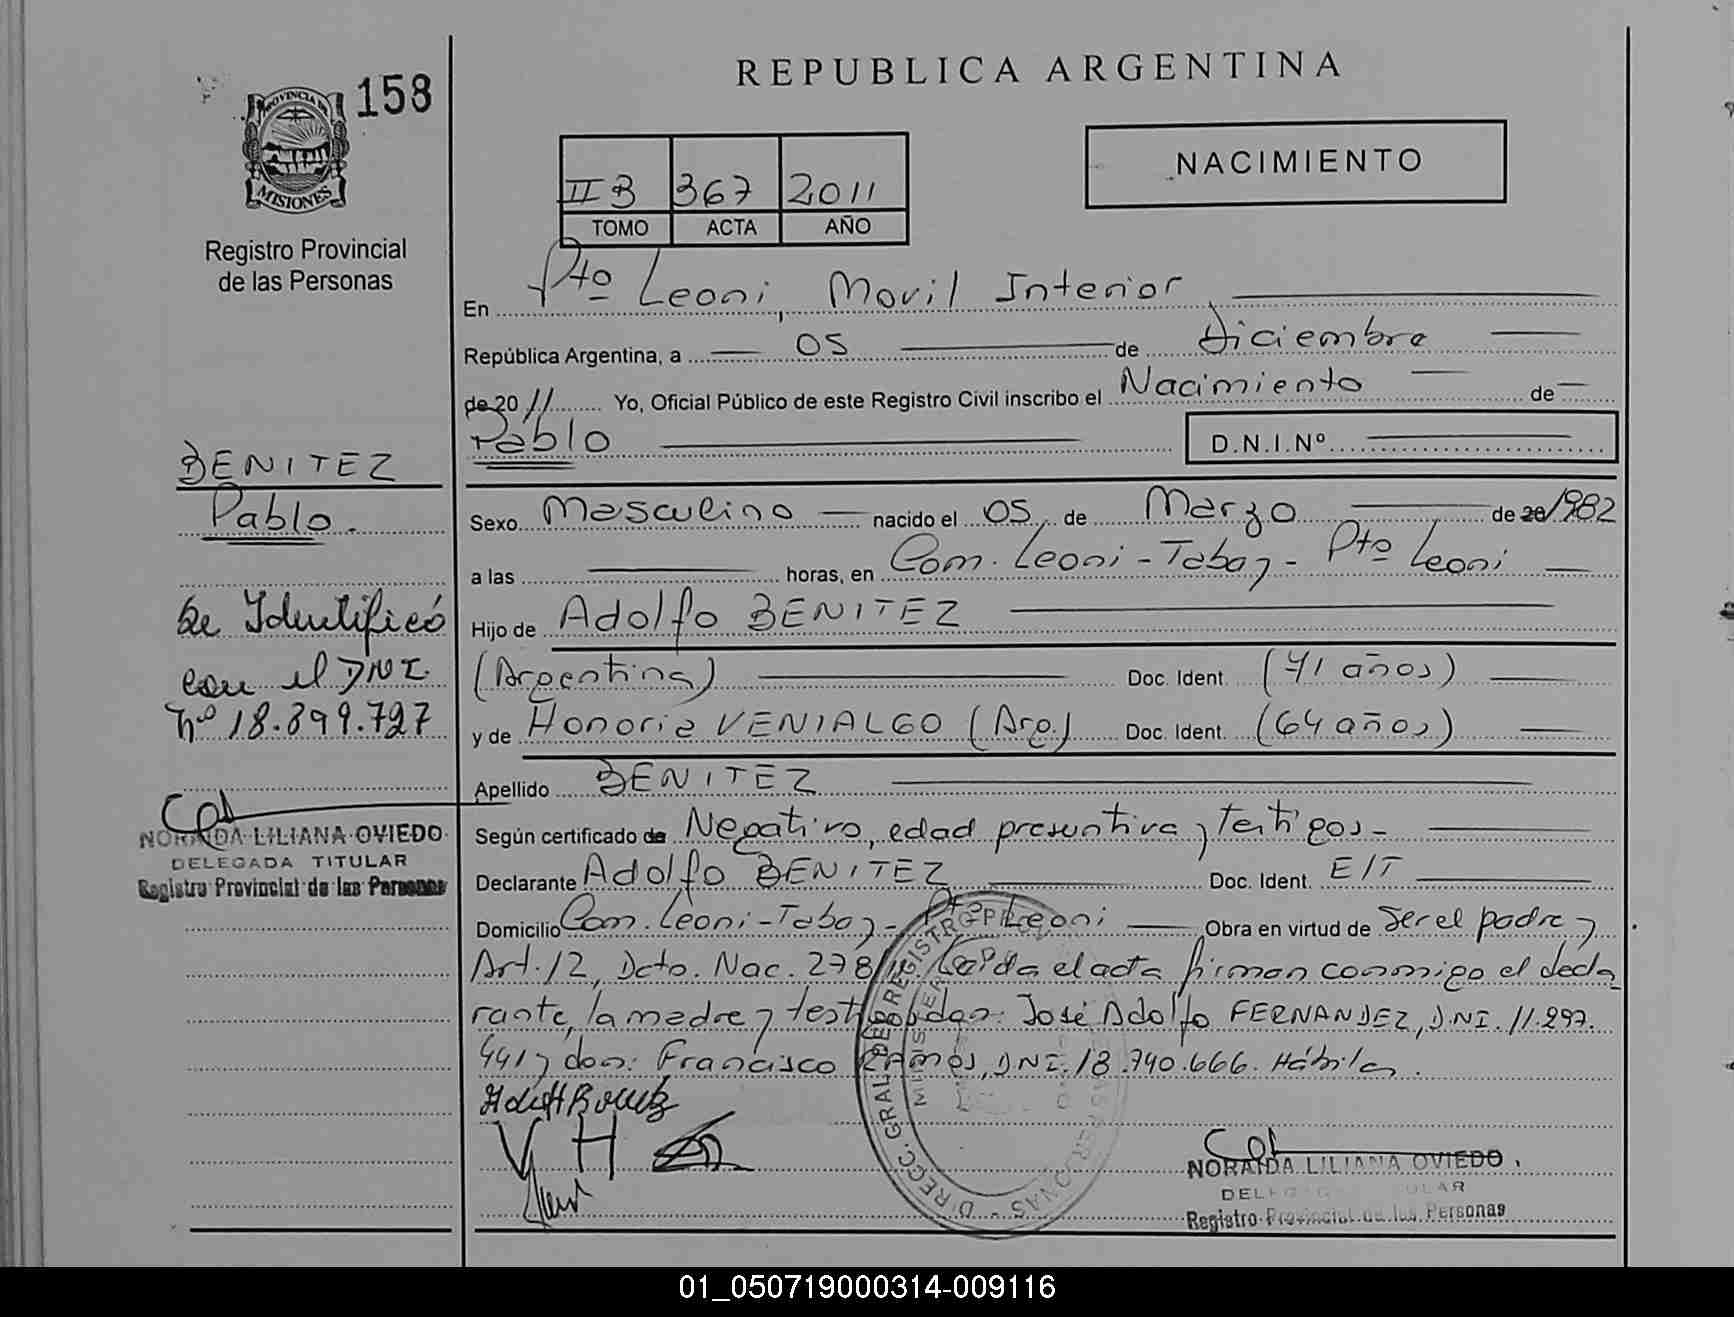 REPUBLICA ARGENTINA
158
PROVINCIA DE
MISIONES
Registro Provincial
de las Personas
NACIMIENTO
II B 367 2011
TOMO ACTA AÑO
En Pto Leoni, Movil Interior
República Argentina, a 05 de Diciembre
de 20 11 Yo, Oficial Público de este Registro Civil inscribo el Nacimiento de
Pablo D.N.I.Nº
BENITEZ
Pablo.
Sexo Masculino nacido el 05 de Marzo de 20 1982
a las horas, en Com. Leoni - Tabay - Pto Leoni
Hijo de Adolfo BENITEZ
Se Identificó
con el DNI.
Nº 18.899.727
(Argentina) Doc. Ident. (71 años)
y de Honoria VENIALGO (Arg.) Doc. Ident. (64 años)
Apellido BENITEZ
Según certificado de Negativo, edad presuntiva y testigos -
NORAIDA LILIANA OVIEDO
DELEGADA TITULAR
Registro Provincial de las Personas
Declarante Adolfo BENITEZ Doc. Ident. E/T
Domicilio Com. Leoni - Tabay - Pto Leoni Obra en virtud de Ser el padre y
Art. 12, Dcto. Nac. 278/11. Leída el acta firman conmigo el decla
rante, la madre y testigos don: José Adolfo FERNANDEZ, D.N.I. 11.297.
441 y don: Francisco RAMOS, DNI. 18.740.666. Hábiles.
V H
NORAIDA LILIANA OVIEDO
Registro Provincial de las Personas
01_050719000314-009116